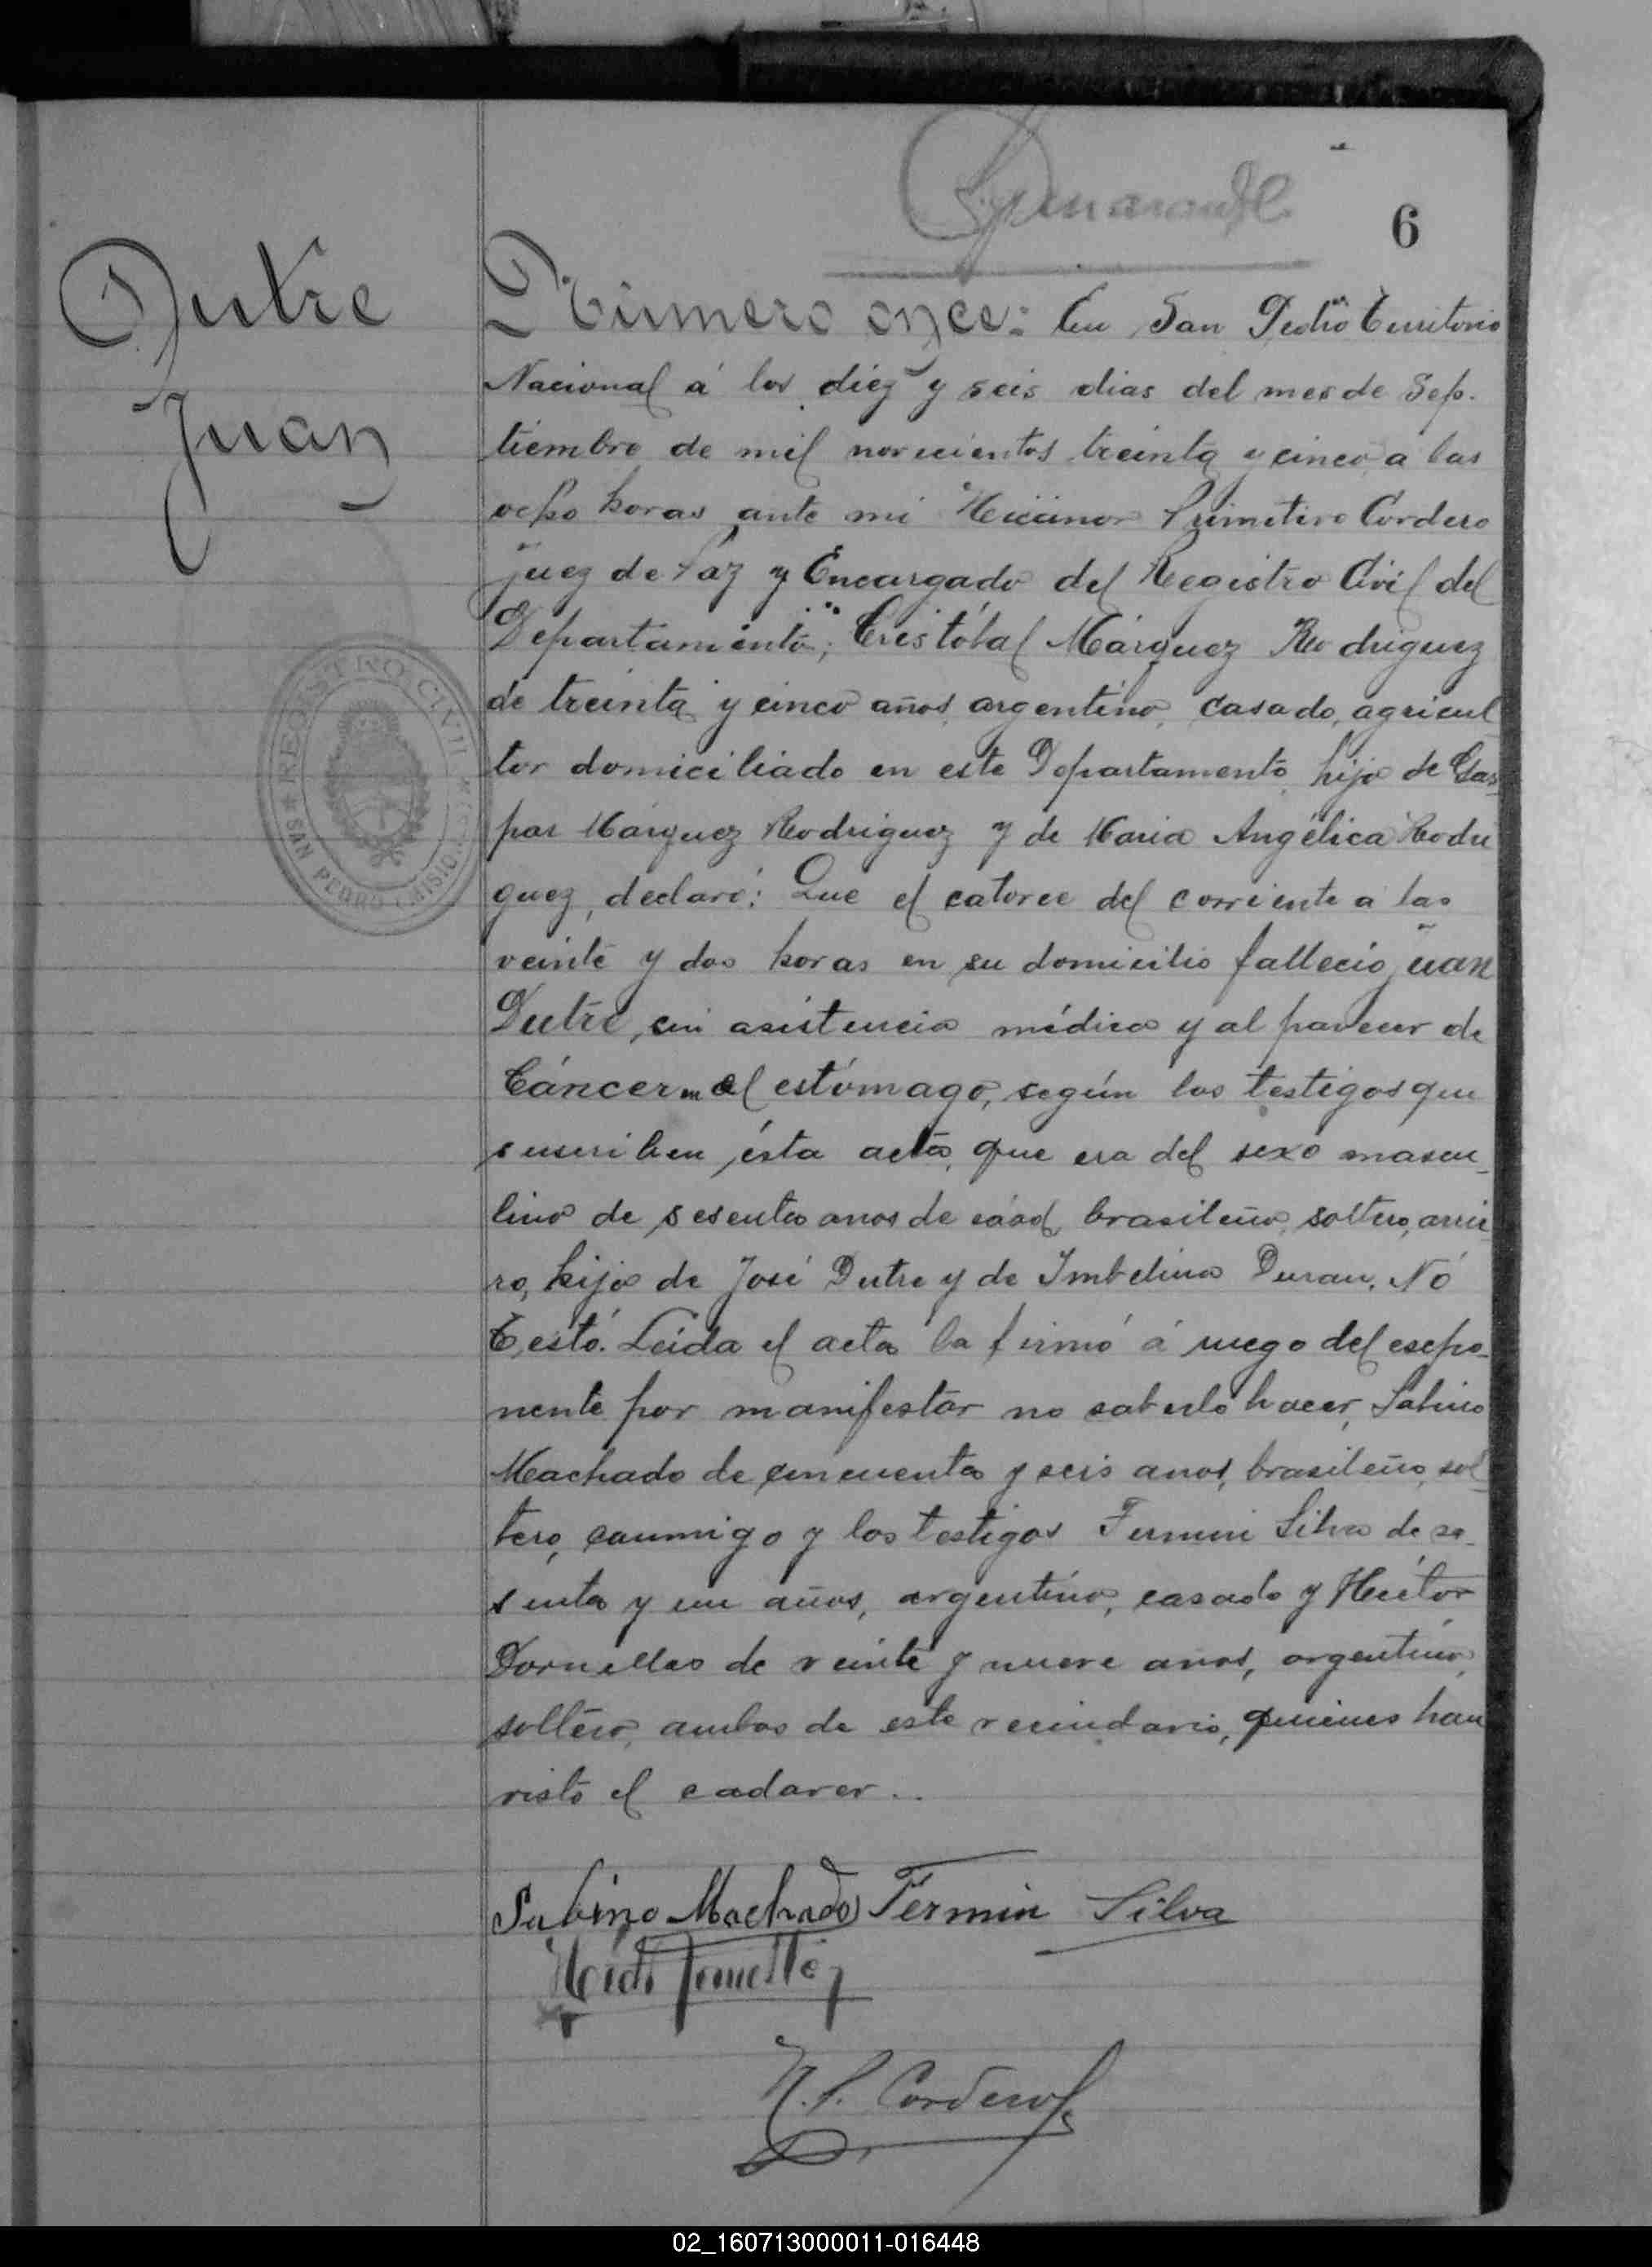 6
Dutre
Juan
Número once: En San Pedro Territorio
Nacional á los diez y seis dias del mes de Sep-
tiembre de mil novecientos treinta y cinco a las
ocho horas ante mi Nicanor Primitivo Cordero
Juez de Paz y Encargado del Registro Civil del
Departamento; Cristóbal Márquez Rodriguez
de treinta y cinco años, argentino, casado, agricul
tor domiciliado en este Departamento, hijo de Gas-
par Márquez Rodriguez y de Maria Angélica Rodri
guez, declaró: Que el catorce del corriente a las
veinte y dos horas en su domicilio falleció Juan
Dutre, sin asistencia médica y al parecer de
Cáncer en el estómago, según los testigos que
suscriben ésta acta, que era del sexo mascu-
lino de sesenta anos de edad, brasileño, soltero, arrie-
ro, hijo de José Dutre y de Imbelina Duran. Nó
Testó. Leida el acta la firmó á ruego del espo-
nente por manifestar no saberlo hacer, Sabino
Machado de cincuenta y seis anos, brasileño, sol-
tero, conmigo y los testigos Fermin Silva de se-
senta y un años, argentino, casado y Héctor
Dornelles de veinte y nueve anos, argentino,
soltero, ambos de este vecindario, quienes han
visto el cadaver..
Sabino Machado Fermin Silva
N. P. Cordero
REGISTRO CIVIL
SAN PEDRO (MISIONES)
02_160713000011-016448